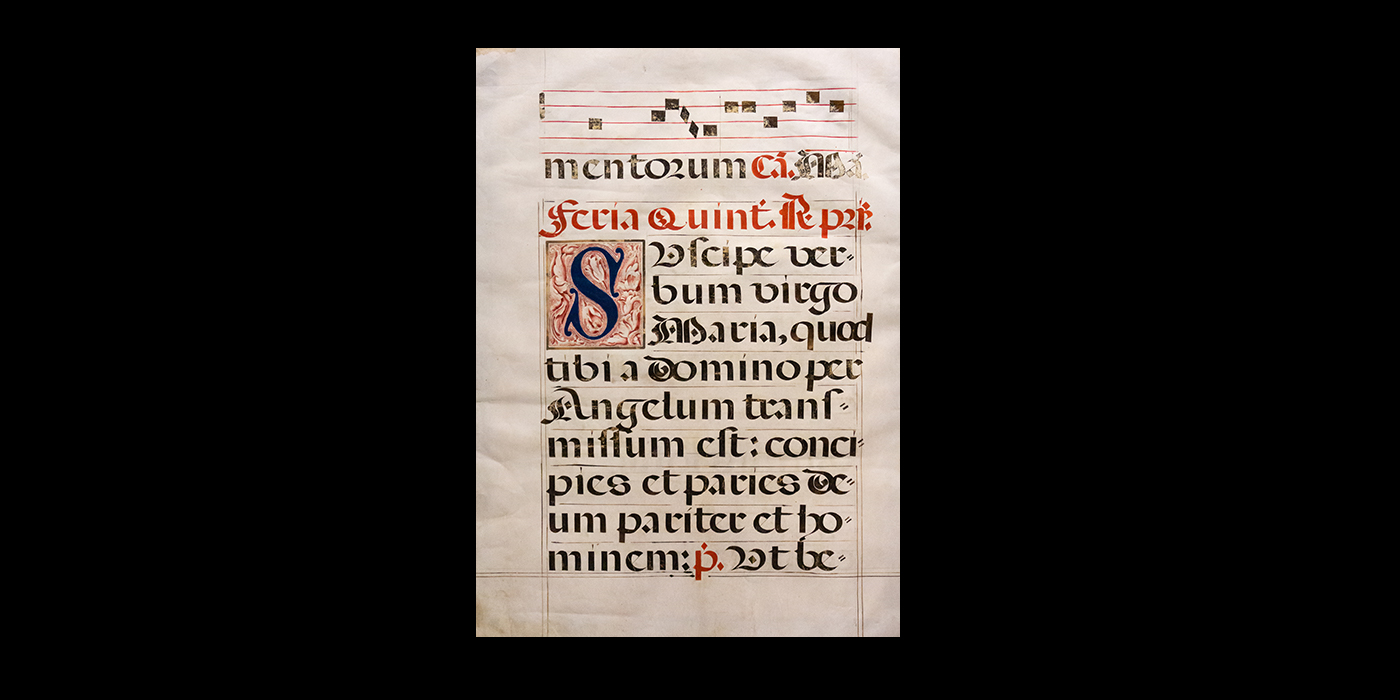 mentorum Cā. Ma
Feria Quint. R pri:
SVſcipe ver=
bum virgo
Maria, quod
tibi a domino per
Angelum tranſ=
miſſum eſt: conci=
pies et paries de=
um pariter et ho=
minem: p. Vt be=